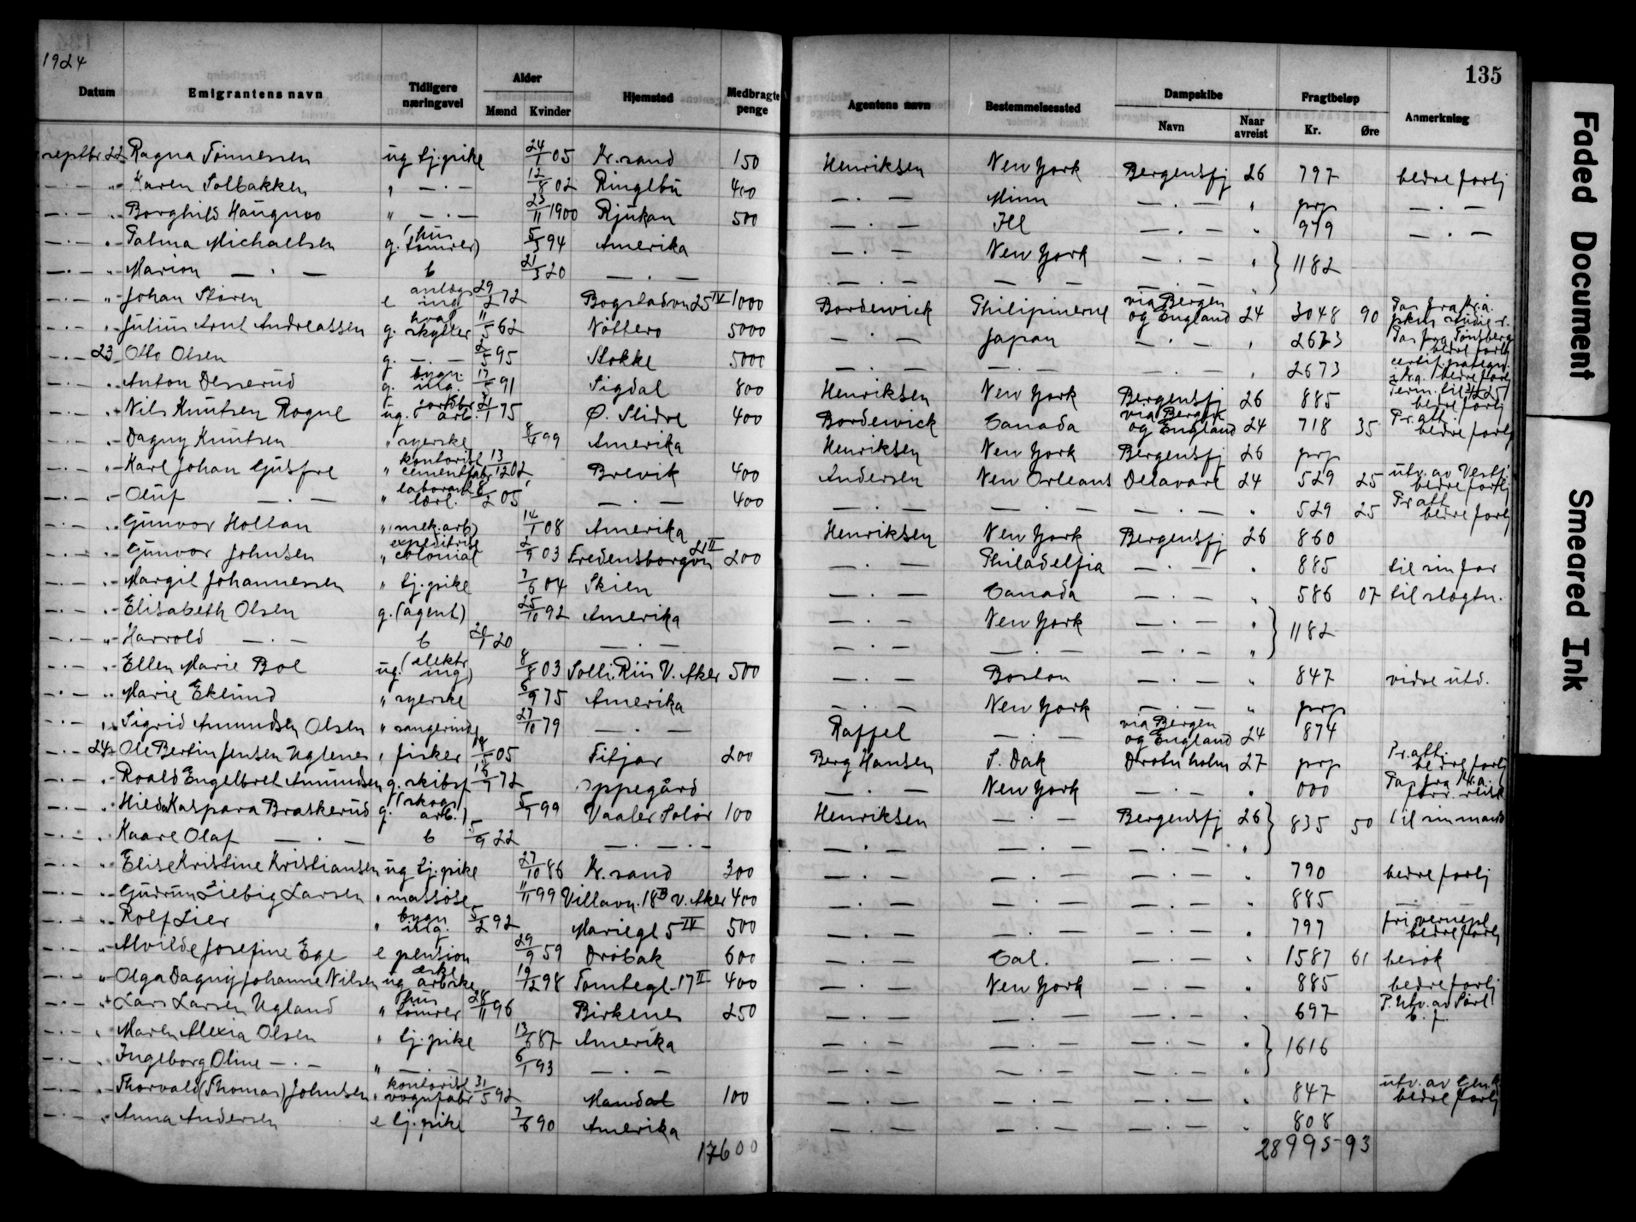 1924
135
Datum Emigrantens navn Tidligere næringsvei Alder Mænd Kvinder Hjemsted Medbragte penge Agentens navn Bestemmelsessted Dampskibe Navn Naar avreist Fragtbeløp Kr. Øre Anmerkning
septbr 22 Ragna Tønnessen ug tj.pike 24/1 05 Kr.sand 150 Henriksen New York Bergensfj 26 797 bedre forlj
— · — „ Karen Solbakken „ — · — 12/8 02 Ringebu 400 — · — Minn — · — „ prp — · —
— · — „ Borghild Haugnoo „ — · — 23/11 1900 Rjukan 500 — · — Ill — · — „ 979 — · —
— · — „ Palma Michaelsen g. (hus tømrer) 5/3 94 Amerika — · — New York — · — „ } 1182
— · — „ Marion — · — b 21/3 20 — · — — · — — · — — · — „
— · — „ Johan Støren e anlegs ing 29/2 72 Bogstadvn 25 IV 1000 Bordewick Philipinerne via Bergen og England 24 3048 90
— · — „ Julius Arnt Andreassen g. hval skytter 11/5 62 Nøttero 5000 — · — Japan — · — „ 2673 Pas fra Tønsberg bedre forlj
— · — 23 Otto Olsen g. — · — 95 Stokke 5000 — · — — · — — · — „ 2673
— · — „ Anton Desserud g. bygn. ing. 91 Sigdal 800 Henriksen New York Bergensfj 26 885 bedre forlj
— · — „ Nils Knutsen Rogne ug. arb. 75 Ø. Slidre 400 Bordewick Canada via Bergen og England 24 718 35 Pr.att. bedre forlj
— · — „ Dagny Knutsen „ syerske 99 Amerika Henriksen New York Bergensfj 26 prp
— · — „ Karl Johan Gusfre „ kontorist cementfabr 13/12 02 Brevik 400 Andersen New Orleans Delaware 24 529 25 utv. av Vestfj. bedre forlj
— · — „ Oluf — · — „ laborant 8/2 05 — · — 400 — · — — · — — · — „ 529 25 Pr att. bedre forlj
— · — „ Gunvor Holtan „ (mek.arb) 14/1 08 Amerika Henriksen New York Bergensfj 26 860
— · — „ Gunvor Johnsen „ expeditrise colonial 2/9 03 Fredensborgvn 21 II 200 — · — Philadelfia — · — „ 885 til sin far
— · — „ Margit Johannessen „ tj.pike 7/6 04 Skien — · — Canada — · — „ 586 07 til slægtn.
— · — „ Elisabeth Olsen g. (agent) 25/10 92 Amerika — · — New York — · — „ } 1182
— · — „ Harrold — · — b 20 — · — — · — — · — — · — „
— · — „ Ellen Marie Boe ug. (elektr ing) 8/8 03 Solli, Riis V. Aker 500 — · — Boston — · — „ 847 vidre utd.
— · — „ Marie Eklund „ syerske 5/9 75 Amerika — · — New York — · — „ prp
— · — „ Sigrid Amundsen Olsen „ sangerinde 27/10 79 — · — Raffel — · — via Bergen og England 24 874
— · — 24 Ole Bertin Jensen Uglenes „ fisker 05 Fitjar 200 Berg Hansen S. Dak Drotn holm 27 prp Pr.att. bedre forlj
— · — „ Roald Engelbret Amundsen g. skibsf 16/7 72 Oppegård — · — New York — · — „ 000 Pas fra Kr.a.
— · — „ Hilda Kaspara Braskerud g. (skogs arb.) 5/1 99 Vaaler Solør 100 Henriksen — · — Bergensfj 26 } 835 50 til sin mand
— · — „ Kaare Olaf — · — b 5/9 22 — · — — · — — · — — · — „
— · — „ Elise Kristine Kristiansen ug tj.pike 27/10 86 Kr. sand 300 — · — — · — — · — „ 790 bedre forlj
— · — „ Gudrun Liebig Larsen „ massøse 11/11 99 Villavn. 18 B V. Aker 400 — · — — · — — · — „ 885 — · —
— · — „ Rolf Lier „ bygn ing. 5/2 92 Mariegt 5 IV 500 — · — — · — — · — „ 797 bedre forlj
— · — „ Alvilde Josefine Ege e pension 29/9 59 Drøbak 600 — · — Cal. — · — „ 1587 61 besøk
— · — „ Olga Dagny Johanne Nilsen ug eske arbske 19/12 98 Tomtegt. 17 II 400 — · — New York — · — „ 885 bedre forlj
— · — „ Lars Larsen Ugland „ hus tømrer 28/11 96 Birkenes 250 — · — — · — — · — „ 697 P. utv. av Sørl. b. f.
— · — „ Maren Alexia Olsen „ tj.pike 13/6 87 Amerika — · — — · — — · — „ } 1616
— · — „ Ingeborg Oline — · — „ — · — 6/1 93 — · — — · — — · — — · — „
— · — „ Thorvald (Thomas) Johnsen „ kontorist vognfabr 31/5 92 Mandal 100 — · — — · — — · — „ 847 bedre forlj
— · — „ Anna Andersen e tj.pike 7/6 90 Amerika — · — — · — — · — „ 808
17600 28995-93
Faded Document
Smeared Ink